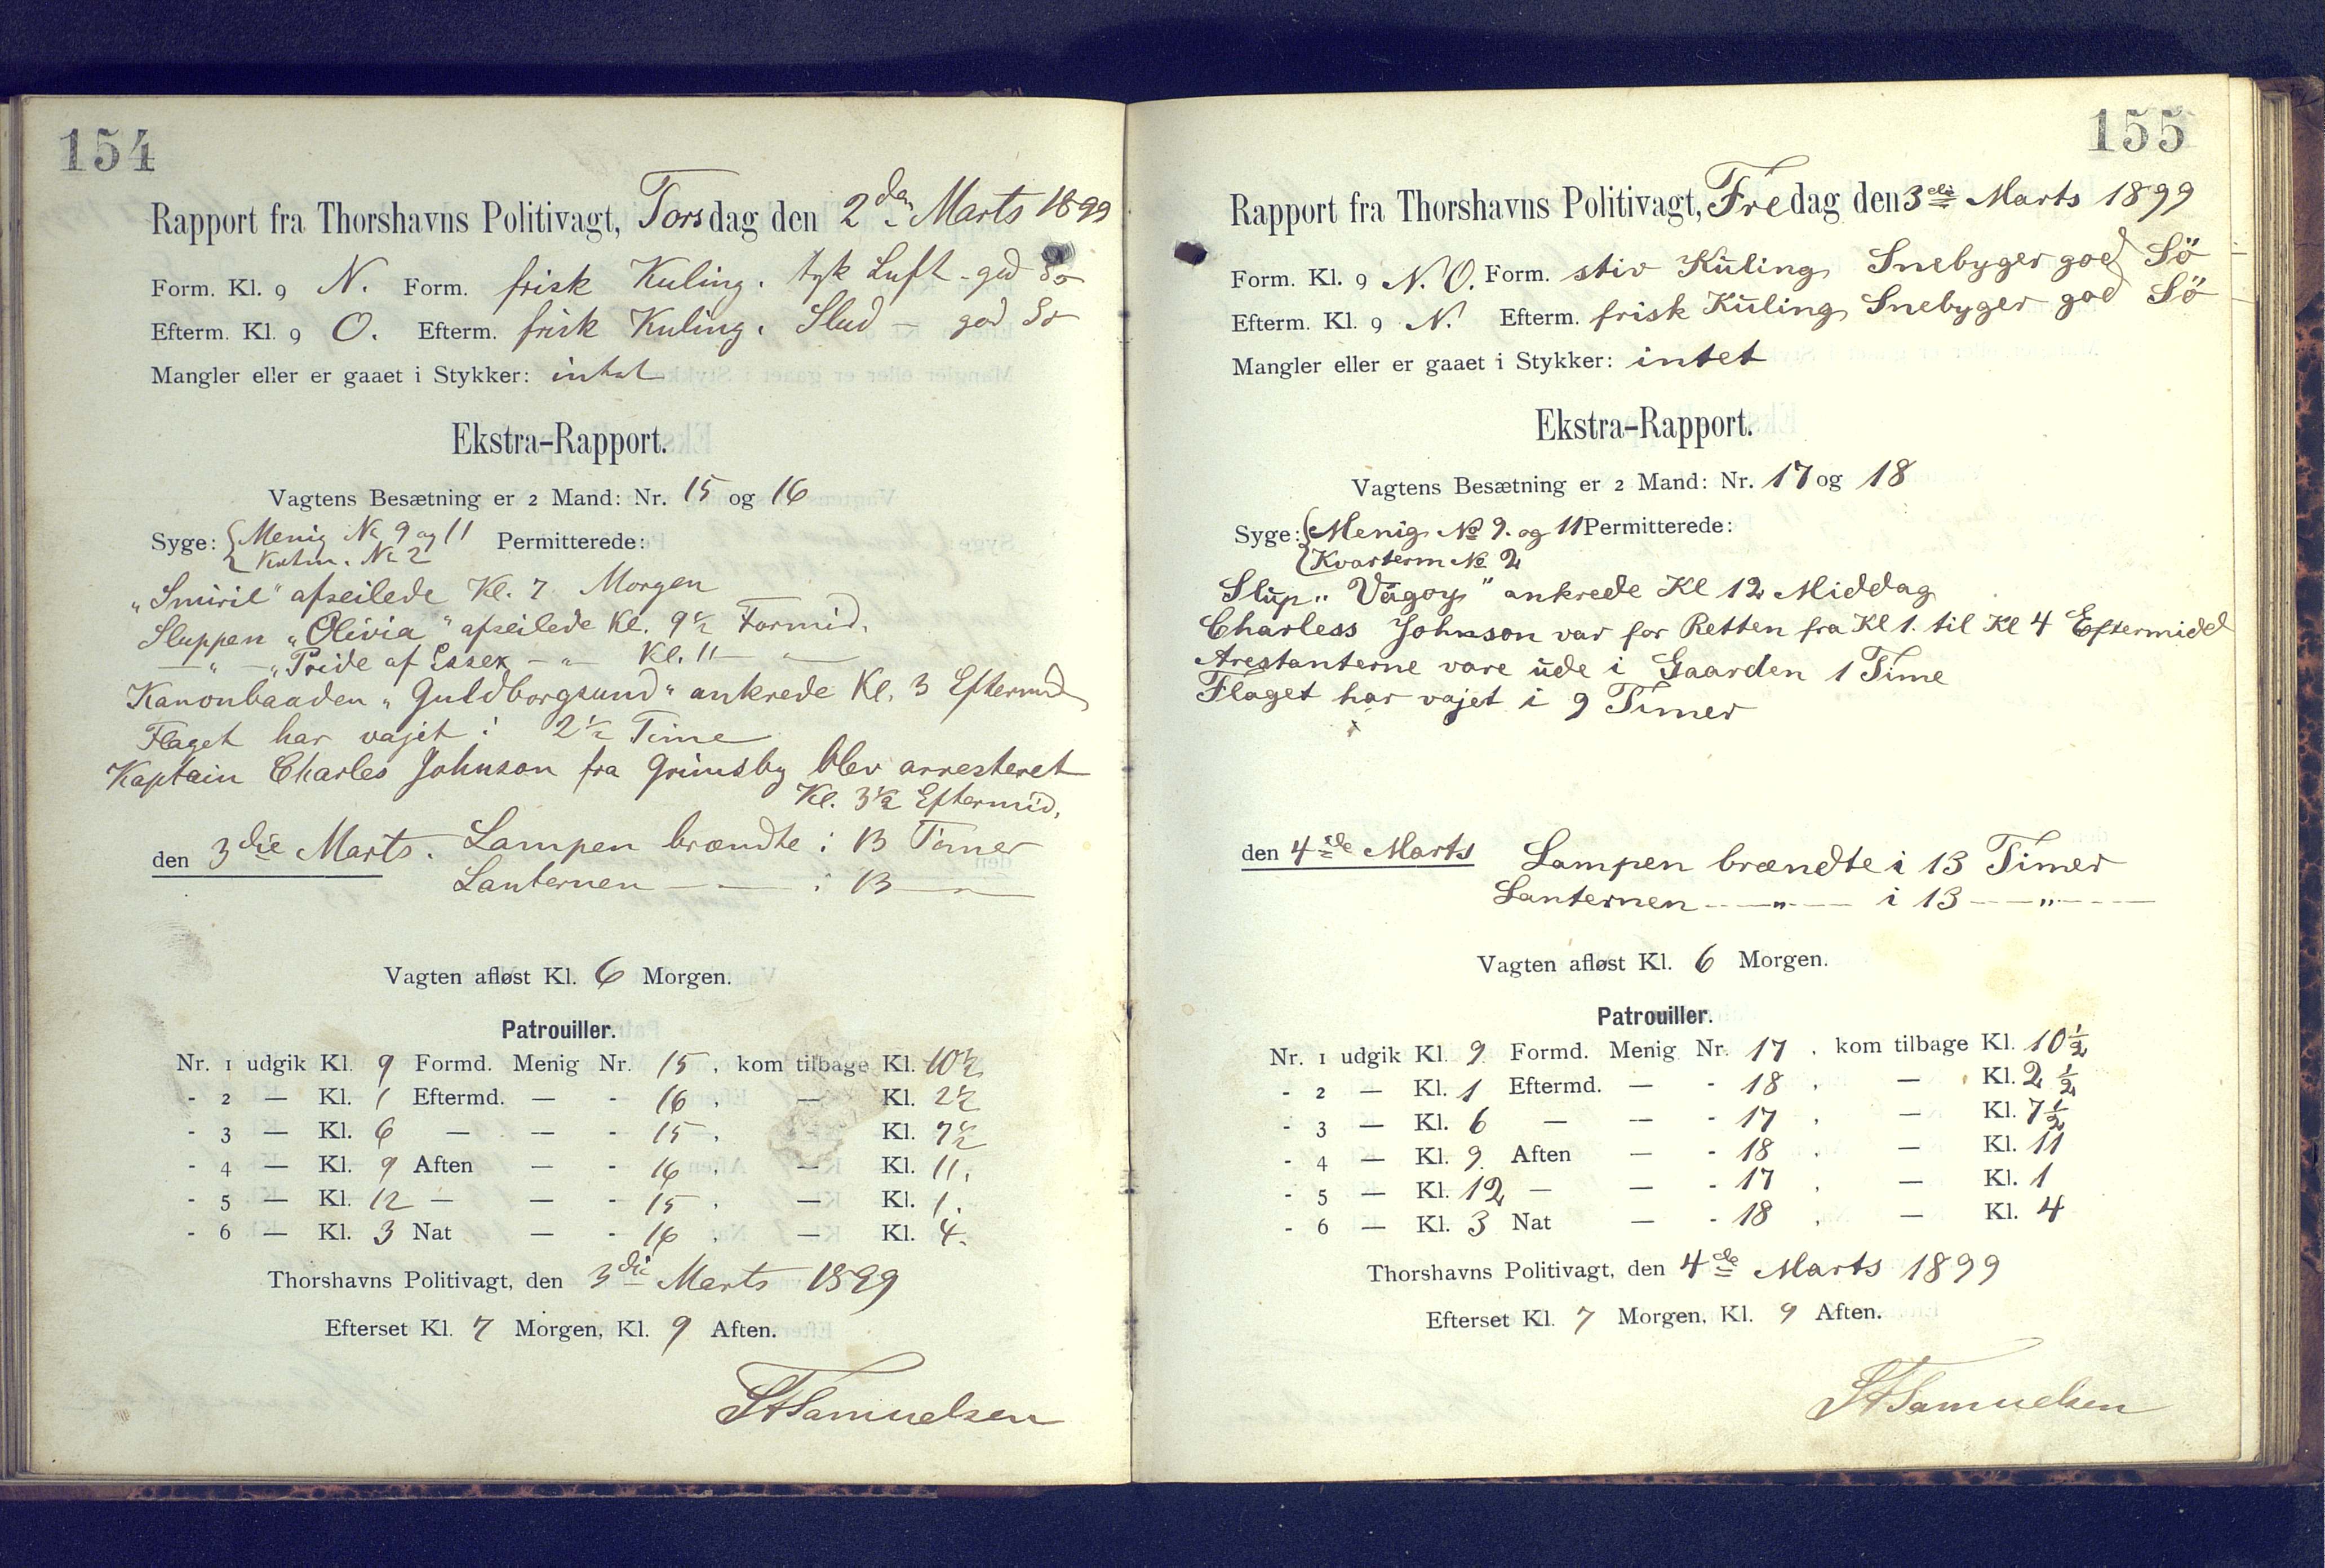 154
Rapport fra Thorshavns Politivagt, Torsdag den 2den Marts 1899
Form. Kl. 9 N. Form. frisk Kuling. tyk Luft - god Sø
Efterm. Kl. 9 O. Efterm. frisk Kuling. Slud — god Sø
Mangler eller er gaaet i Stykker: intet
Ekstra-Rapport.
Vagtens Besætning er 2 Mand: Nr. 15 og 16
Syge: Menig No 9 og 11 Permitterede:
No 2
„Smiril" afseilede Kl. 7 Morgen
Sluppen „Olivia" afseilede Kl. 9½ Formid.
— „ — „Pride af Essex — „ — Kl. 11 — „ —
Kanonbaaden „Guldborgsund" ankrede Kl. 3 Eftermid
Flaget har vajet i 2½ Time
Kaptein Charles Johnson fra Grimsby blev arresteret
Kl. 3½ Eftermid.
den 3die Marts. Lampen brændte i 13 Timer
Lanternen — — i 13 — „ —
Vagten afløst Kl. 6 Morgen.
Patrouiller.
Nr. 1 udgik Kl. 9 Formd. Menig Nr. 15, kom tilbage Kl. 10½
- 2 — Kl. 1 Eftermd. — - 16, — Kl. 2½
- 3 — Kl. 6 — — - 15, — Kl. 7½
- 4 — Kl. 9 Aften — - 16, — Kl. 11.
- 5 — Kl. 12 — — - 15, — Kl. 1.
- 6 — Kl. 3 Nat — - 16, — Kl. 4.
Thorshavns Politivagt, den 3die Marts 1899
Efterset Kl. 7 Morgen, Kl. 9 Aften.
Samuelsen
155
Rapport fra Thorshavns Politivagt, Fredag den 3die Marts 1899
Form. Kl. 9 N.O. Form. stiv Kuling Snebyger god Sö
Efterm. Kl. 9 N. Efterm. frisk Kuling Snebyger god Sö
Mangler eller er gaaet i Stykker: intet
Ekstra-Rapport.
Vagtens Besætning er 2 Mand: Nr. 17 og 18
Syge: Menig No 9. og 11 Permitterede:
Kvarterm No 2
Slup „Vågoy" ankrede Kl 12 Middag
Charless Johnson var for Retten fra Kl 1. til Kl 4 Eftermidd
Arestanterne vare ude i Gaarden 1 Time
Flaget har vajet i 9 Timer
den 4de Marts Lampen brændte i 13 Timer
Lanternen — „ — i 13 — „ —
Vagten afløst Kl. 6 Morgen.
Patrouiller.
Nr. 1 udgik Kl. 9 Formd. Menig Nr. 17, kom tilbage Kl. 10½
- 2 — Kl. 1 Eftermd. — - 18, — Kl. 2½
- 3 — Kl. 6 — — - 17, — Kl. 7½
- 4 — Kl. 9 Aften — - 18, — Kl. 11
- 5 — Kl. 12 — — - 17, — Kl. 1
- 6 — Kl. 3 Nat — - 18, — Kl. 4
Thorshavns Politivagt, den 4de Marts 1899
Efterset Kl. 7 Morgen, Kl. 9 Aften.
Samuelsen